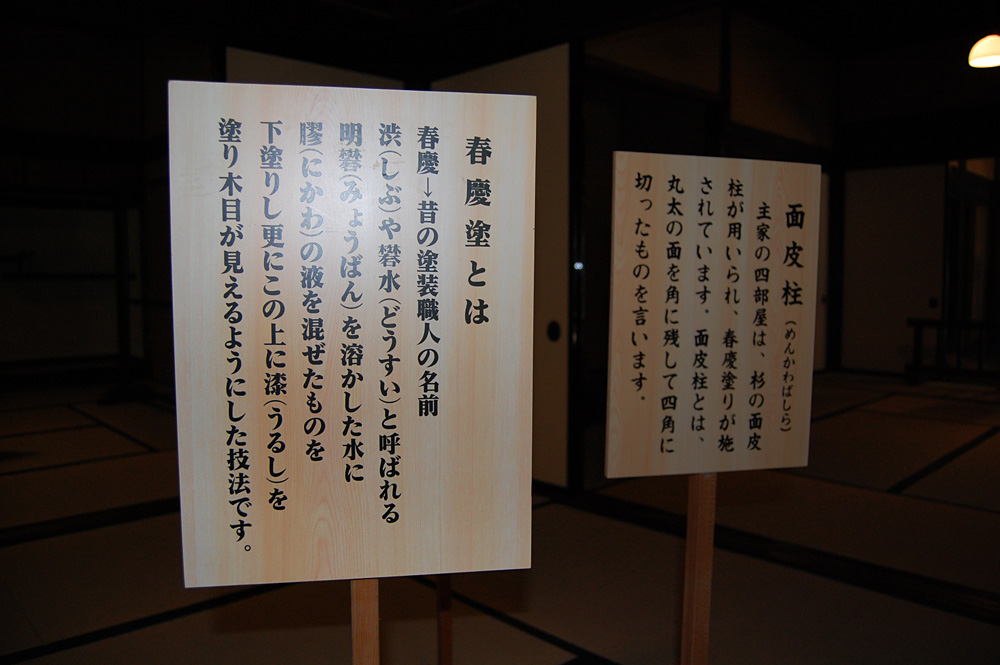 春慶塗とは
春慶→昔の塗装職人の名前
渋(しぶ)や礬水(どうすい)と呼ばれる
明礬(みょうばん)を溶かした水に
膠(にかわ)の液を混ぜたものを
下塗りし更にこの上に漆(うるし)を
塗り木目が見えるようにした技法です。
面皮柱(めんかわばしら)
主家の四部屋は、杉の面皮
柱が用いられ、春慶塗りが施
されています．面皮柱とは、
丸太の面を角に残して四角に
切ったものを言います．